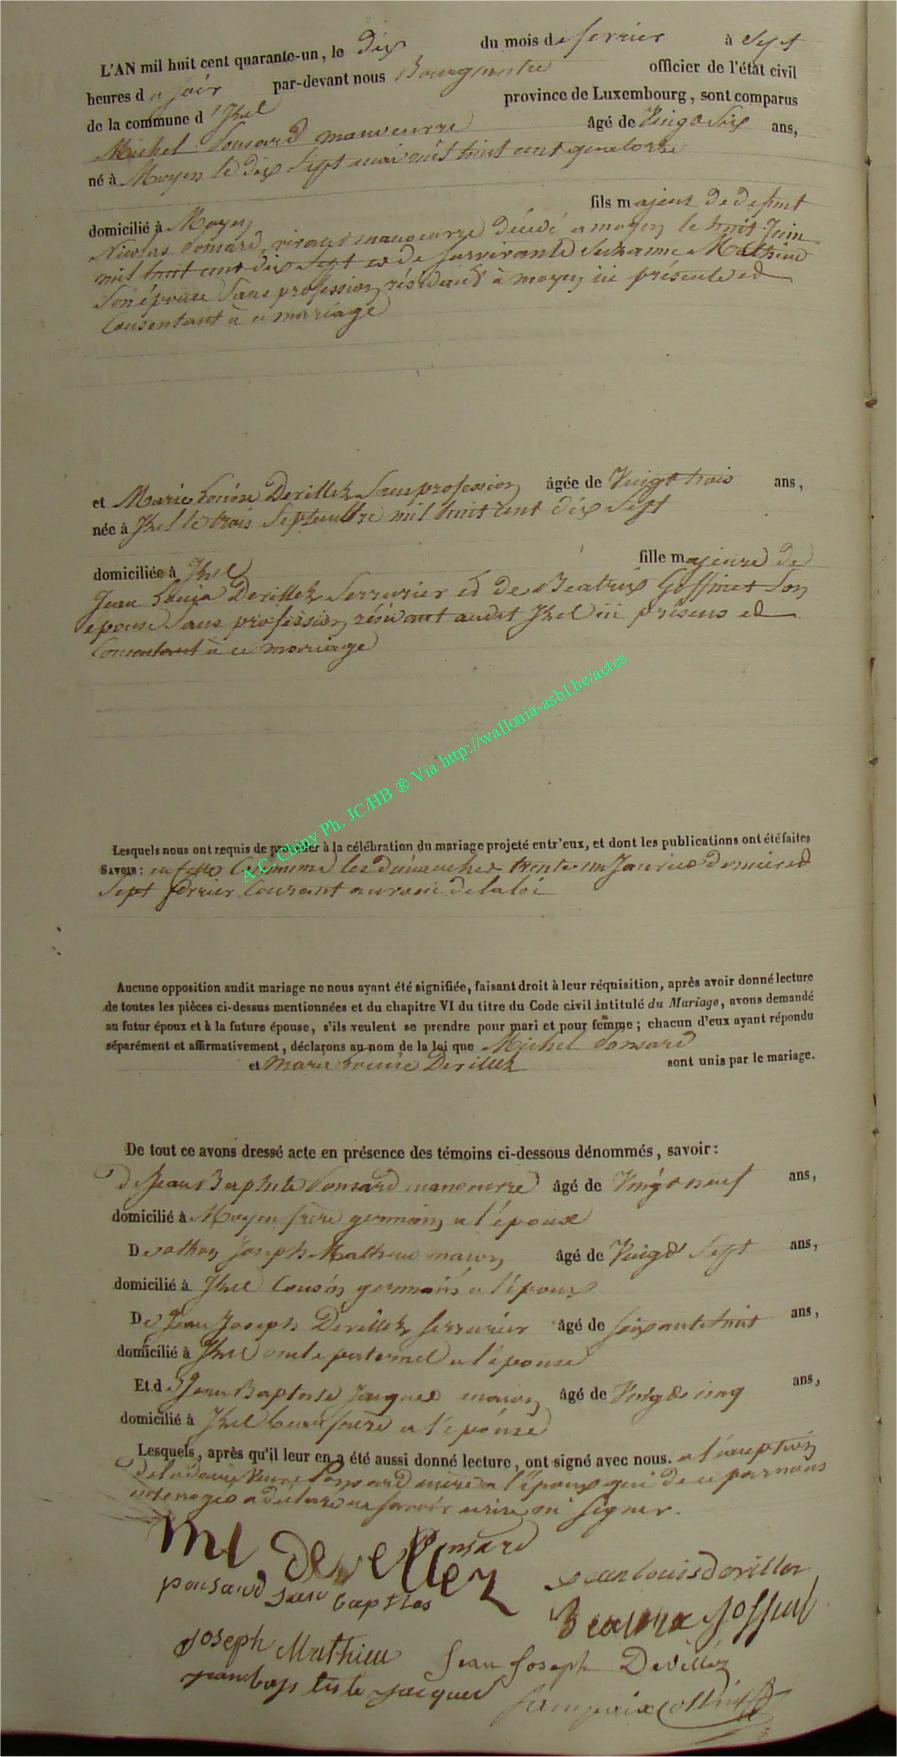 L'AN mil huit cent quarante-un, le dix du mois de février à sept
heures du soir par-devant nous Bourgmestre officier de l'état civil
de la commune d'Izel province de Luxembourg, sont comparus
Michel Ponsard manoeuvre âgé de Vingt Six ans,
né à Moyen le dix Sept mai mil huit cent quatorze
fils majeur de defunt
domicilié à Moyen
Nicolas Ponsard, vivant manoeuvre décédé a moyen le huit Juin
mil huit cent dix Sept et de survivante Suzanne Mathieu
Son épouse Sans profession résidant à moyen ici présente et
Consentant à ce mariage
et Marie Louise Devillez Sans profession âgée de Vingt trois ans,
née à Izel le trois Septembre mil huit cent dix Sept
domiciliée à Izel fille majeure de
Jean Louis Devillez Serrurier et de Béatrix Goffinet Son
épouse Sans profession résidant audit Izel ici présens et
Consentant à ce mariage
A.C. Chiny Ph. JC/HB ® Via http://wallonia-asbl.be/actes
Lesquels nous ont requis de procéder à la célébration du mariage projeté entr'eux, et dont les publications ont été faites
Savoir: en cette Commune les dimanches trente un Janvier dernier et
Sept février Courant au voeu de la loi
Aucune opposition audit mariage ne nous ayant été signifiée, faisant droit à leur réquisition, après avoir donné lecture
de toutes les pièces ci-dessus mentionnées et du chapitre VI du titre du Code civil intitulé du Mariage, avons demandé
au futur époux et à la future épouse, s'ils veulent se prendre pour mari et pour femme; chacun d'eux ayant répondu
séparément et affirmativement, déclarons au nom de la loi que Michel Ponsard
et Marie Louise Devillez sont unis par le mariage.
De tout ce avons dressé acte en présence des témoins ci-dessous dénommés, savoir:
De Jean Baptiste Ponsard manoeuvre âgé de Vingt neuf ans,
domicilié à Moyen frère germain a l'époux
De Joseph Mathieu maçon âgé de Vingt Sept ans,
domicilié à Izel Cousin germain a l'époux
De Jean Joseph Devillez serrurier âgé de soixante huit ans,
domicilié à Izel oncle paternel a l'épouse
Et de Jean Baptiste Jacques maçon âgé de Vingt cinq ans,
domicilié à Izel beau frère a l'épouse
Lesquels, après qu'il leur en a été aussi donné lecture, ont signé avec nous. a l'exception
de la dame Veuve Ponsard mère a l'époux qui de ce par nous
interrogée a déclaré ne savoir écrire ni signer.
ml devellez Ponsard
ponsard Jean baptites Jean louis devillez
Beatrix Goffinet
Joseph Mathieu Jean Joseph Devillez
jean baptiste jacques